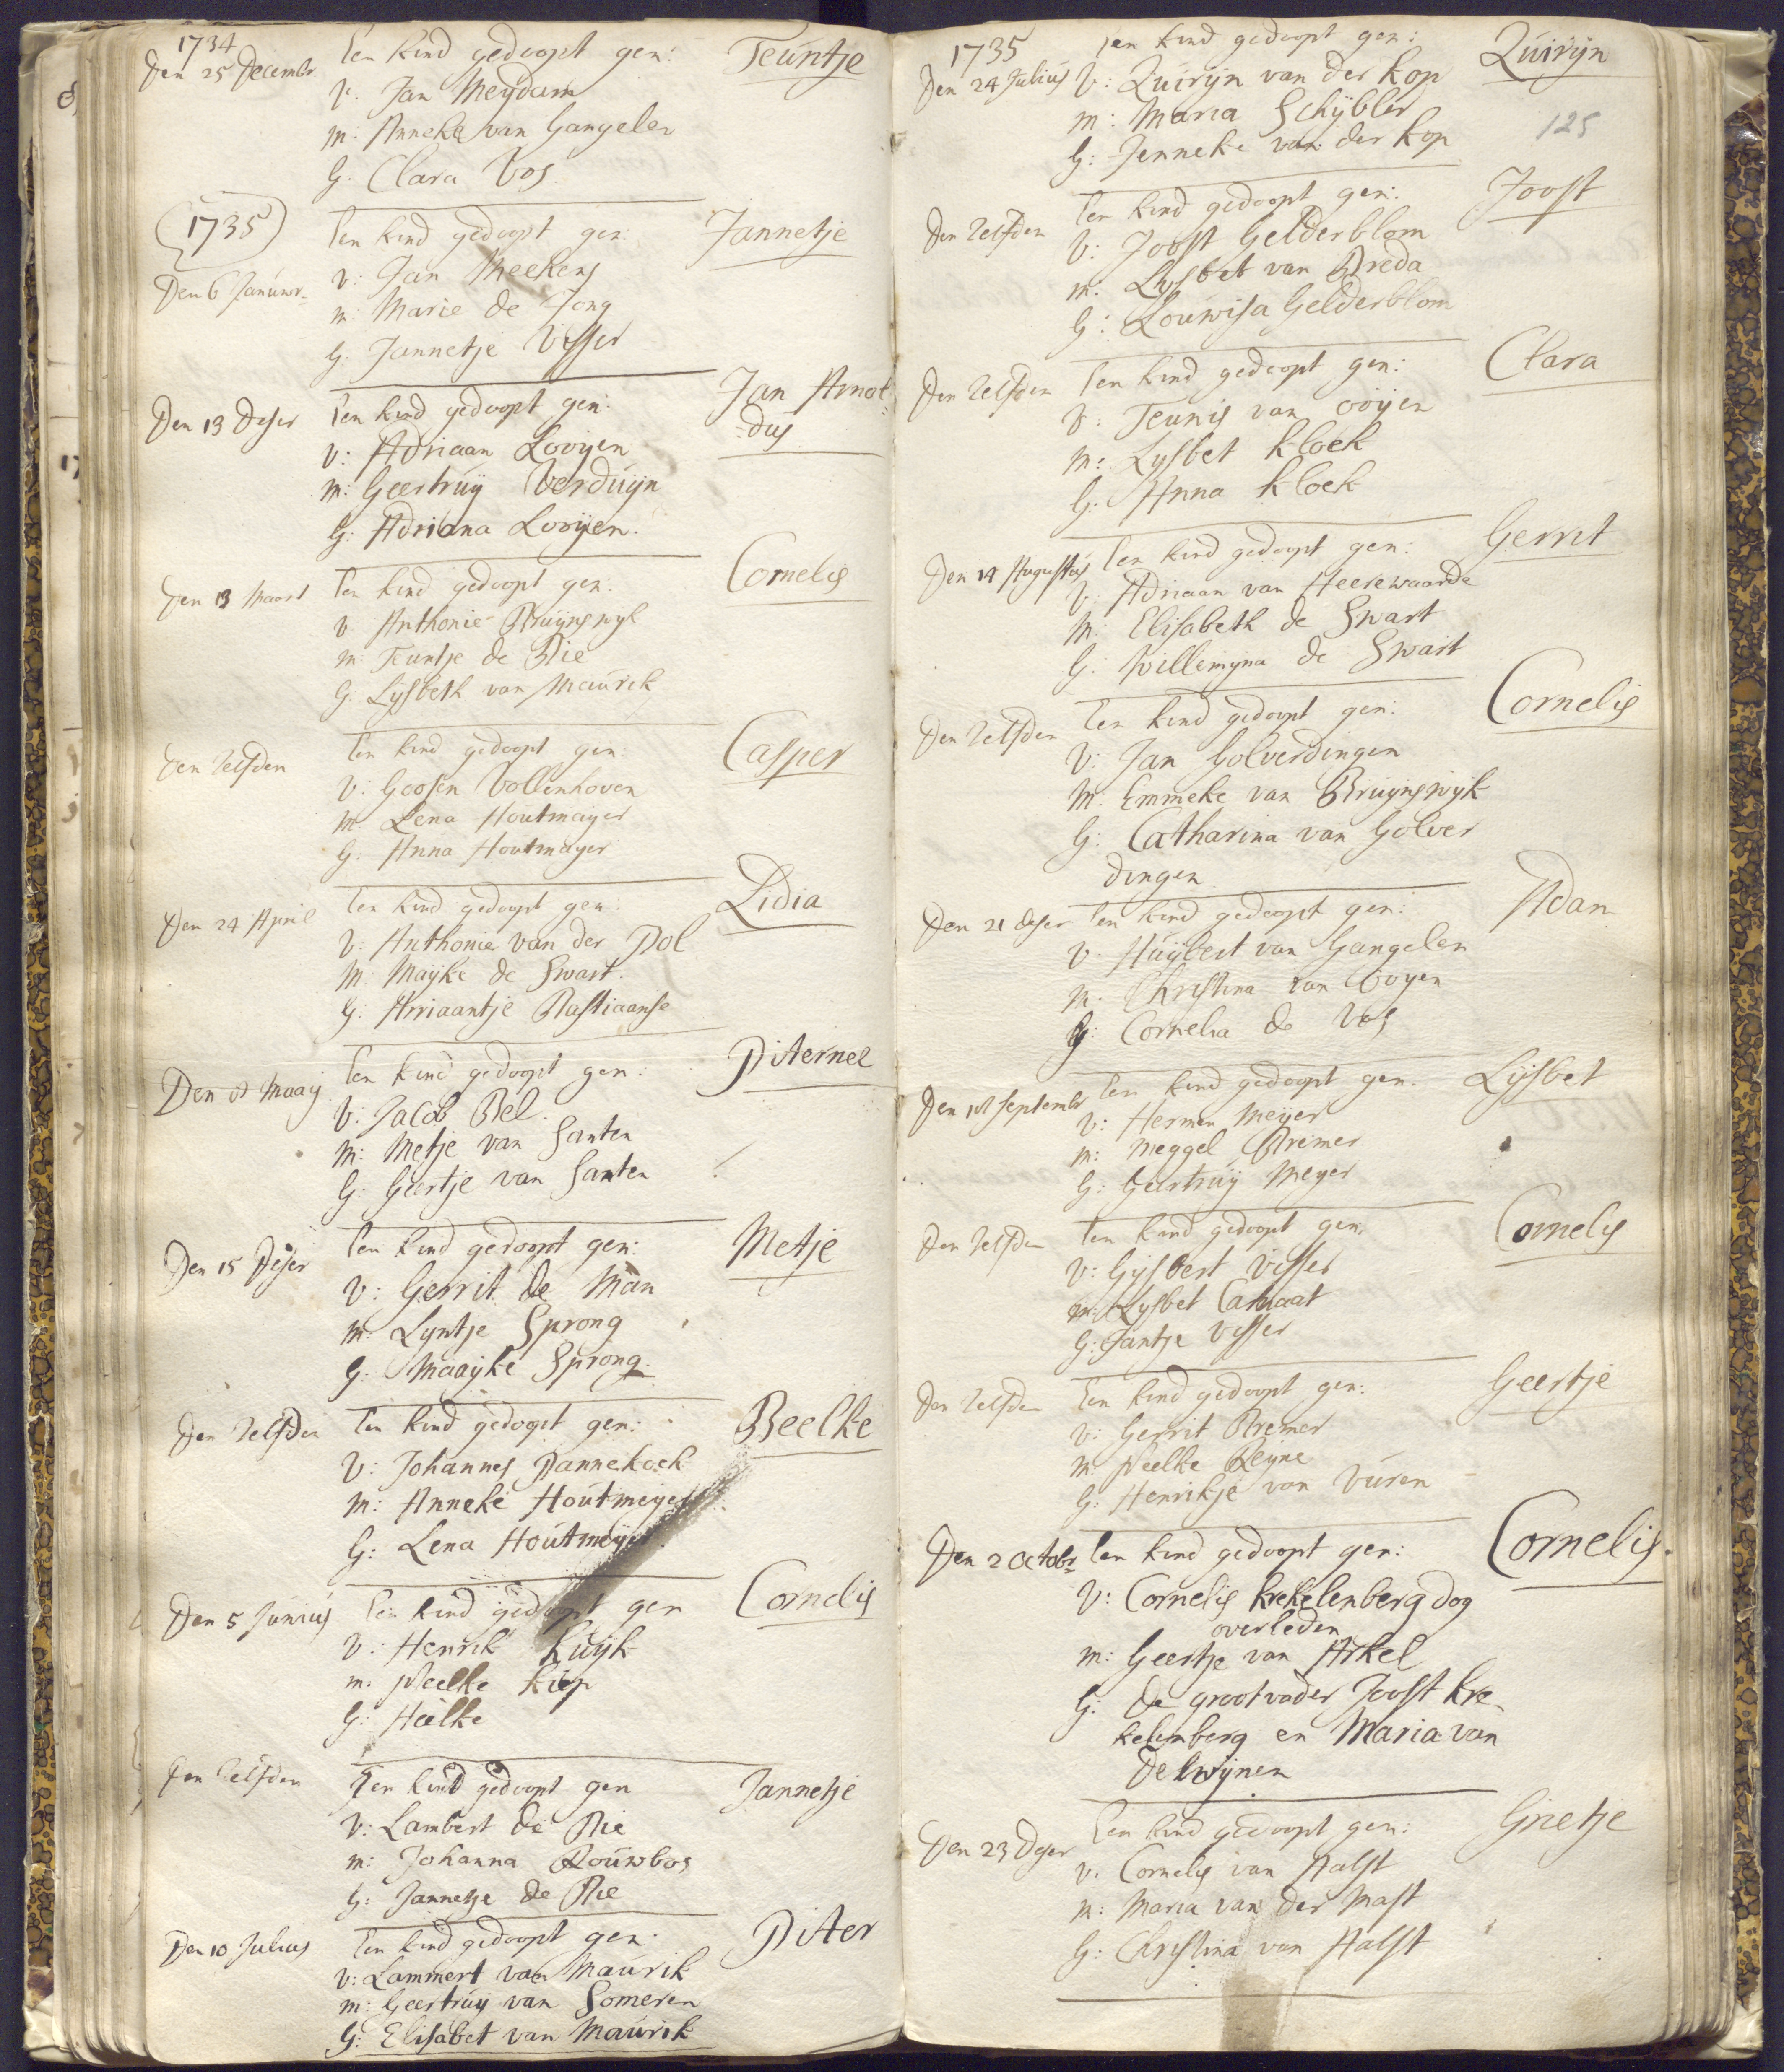 1734
Den 25 Decembr
Een kind gedoopt gen:
Teuntje
V. Jan Meydam
m: Anneke van Gangelen
G. Clara Vos.
(1735)
Een kind gedoopt gen.
Jannetje
Den 6 Januwr
v: Jan Meekens
m. Marie de Jong
G. Jannetje Visser
Den 13 Deser
Een kind gedoopt gen:
Jan Arnol
=dus
v: Adriaan Looijen
m: Geertruij Verduijn
G: Adriana Looijen.
Den 13 Maart
Een kind gedoopt gen.
Cornelis
v Anthonie Bruijnswijk
m: Teuntje de Bie
G. Lijsbeth van Maurik
Den Zelfden
Een kind gedoopt gen
Casper
V: Goosen Vollenhoven
m Lena Houtmaijer
G: Anna Houtmayer
Den 24 April
Een kind gedoopt gen:
Lidia
V: Anthonie van der Pol
M: Maijke de Swart.
G: Arriaantje Bastiaanse
Den 8 Maaij
Een kind gedoopt gen:
Piternel
V. Jacob Bel.
m: Metje van Santen
G: Geertje van Santen
Den 15 Deser
Een kind gedoopt gen:
Metje
V: Gerrit de Man
m: Lyntje Sprong
G: Maaijke Sprong.
Den Zelfden
Een kind gedoopt gen:
Beelke
V: Johannes Pannekoek
m: Anneke Houtmeyer
G: Lena Houtmeijer.
Den 5 Junius
Een kind gedoopt gen
Cornelis
V: Henrik Kuijk
m. Neelke Kiep
G: Hailke
Den Zelfden
Een kind gedoopt gen
Jannetje
V: Lambert de Bie
m: Johanna Rouwbos
G: Jannetje de Bie
Den 10 Julius
Een kind gedoopt gen:
Piter
V: Lammert van Maurik
m: Geertruij van Someren
G: Elisabet van Maurik
1735
Een kind gedoopt gen:
Quirijn
Den 24 Julius
V: Quirijn van der Kop
125
m: Maria Schijbler
G: Jenneke van der Kop
Den Zelfden
Een kind gedoopt gen:
Joost
V: Joost Gelderblom
m: Lysbet van Breda
G: Louwisa Gelderblom
Den Zelfden
Een kind gedoopt gen:
Clara
V: Teunis van ooijen
m: Lysbet Kloek
G: Anna Kloek
Den 14 Augustus
Een kind gedoopt gen:
Gerrit
V: Adriaan van Heerewaarde
M: Elisabeth de Swart
G: Willemijna de Swart
Den Zelfden
Een kind gedoopt gen:
Cornelis
V: Jan Golverdingen
M. Emmeke van Bruijnswijk
G: Catharina van Golver
dingen
Den 21 deser
Een kind gedoopt gen:
Adan
V. Huijbert van Gangelen
m. Christina van Ooyen
G: Cornelia de Vos
Den 18 Septembr
Een kind gedoopt gen.
Lijsbet
V: Hermen Meijer
m: Meggel Bremer
G: Geertruij Meyer
Den Zelfden
Een kind gedoopt gen:
Cornelis
V: Gijsbert Visser
m: Lysbet Camaat
G: Jantje Visser
Den Zelfden
Een kind gedoopt gen:
Geertje
V: Gerrit Bremer
m Neelke Reijne
G: Henrikje van Vuren
Den 2 Octobr
Een kind gedoopt gen:
Cornelis.
V: Cornelis Krekelenberg dog
overleden
m: Geertje van Arkel
G: de grootvader Joost Kre-
kelenberg en Maria van
Delwijnen
Den 23 Deser
Een kind gedoopt gen:
Grietje
v. Cornelis van Aalst
m: Maria van der Mast
G: Christina van Aalst